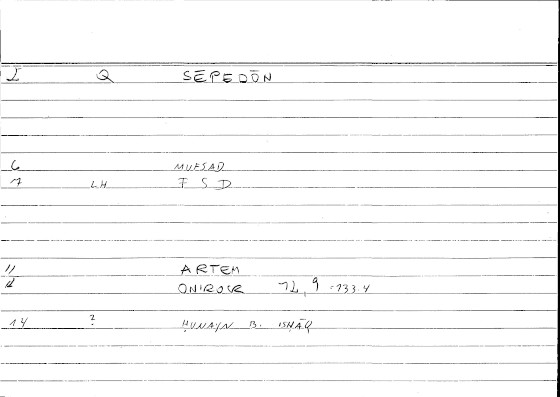 I Q SĒPEDŌN
6 MUFSAD
7 LH F S D
11 ARTEM
12 ONIROCR 12, 9 = 133.4
14 ? ḤUNAYN B. ISḤĀQ